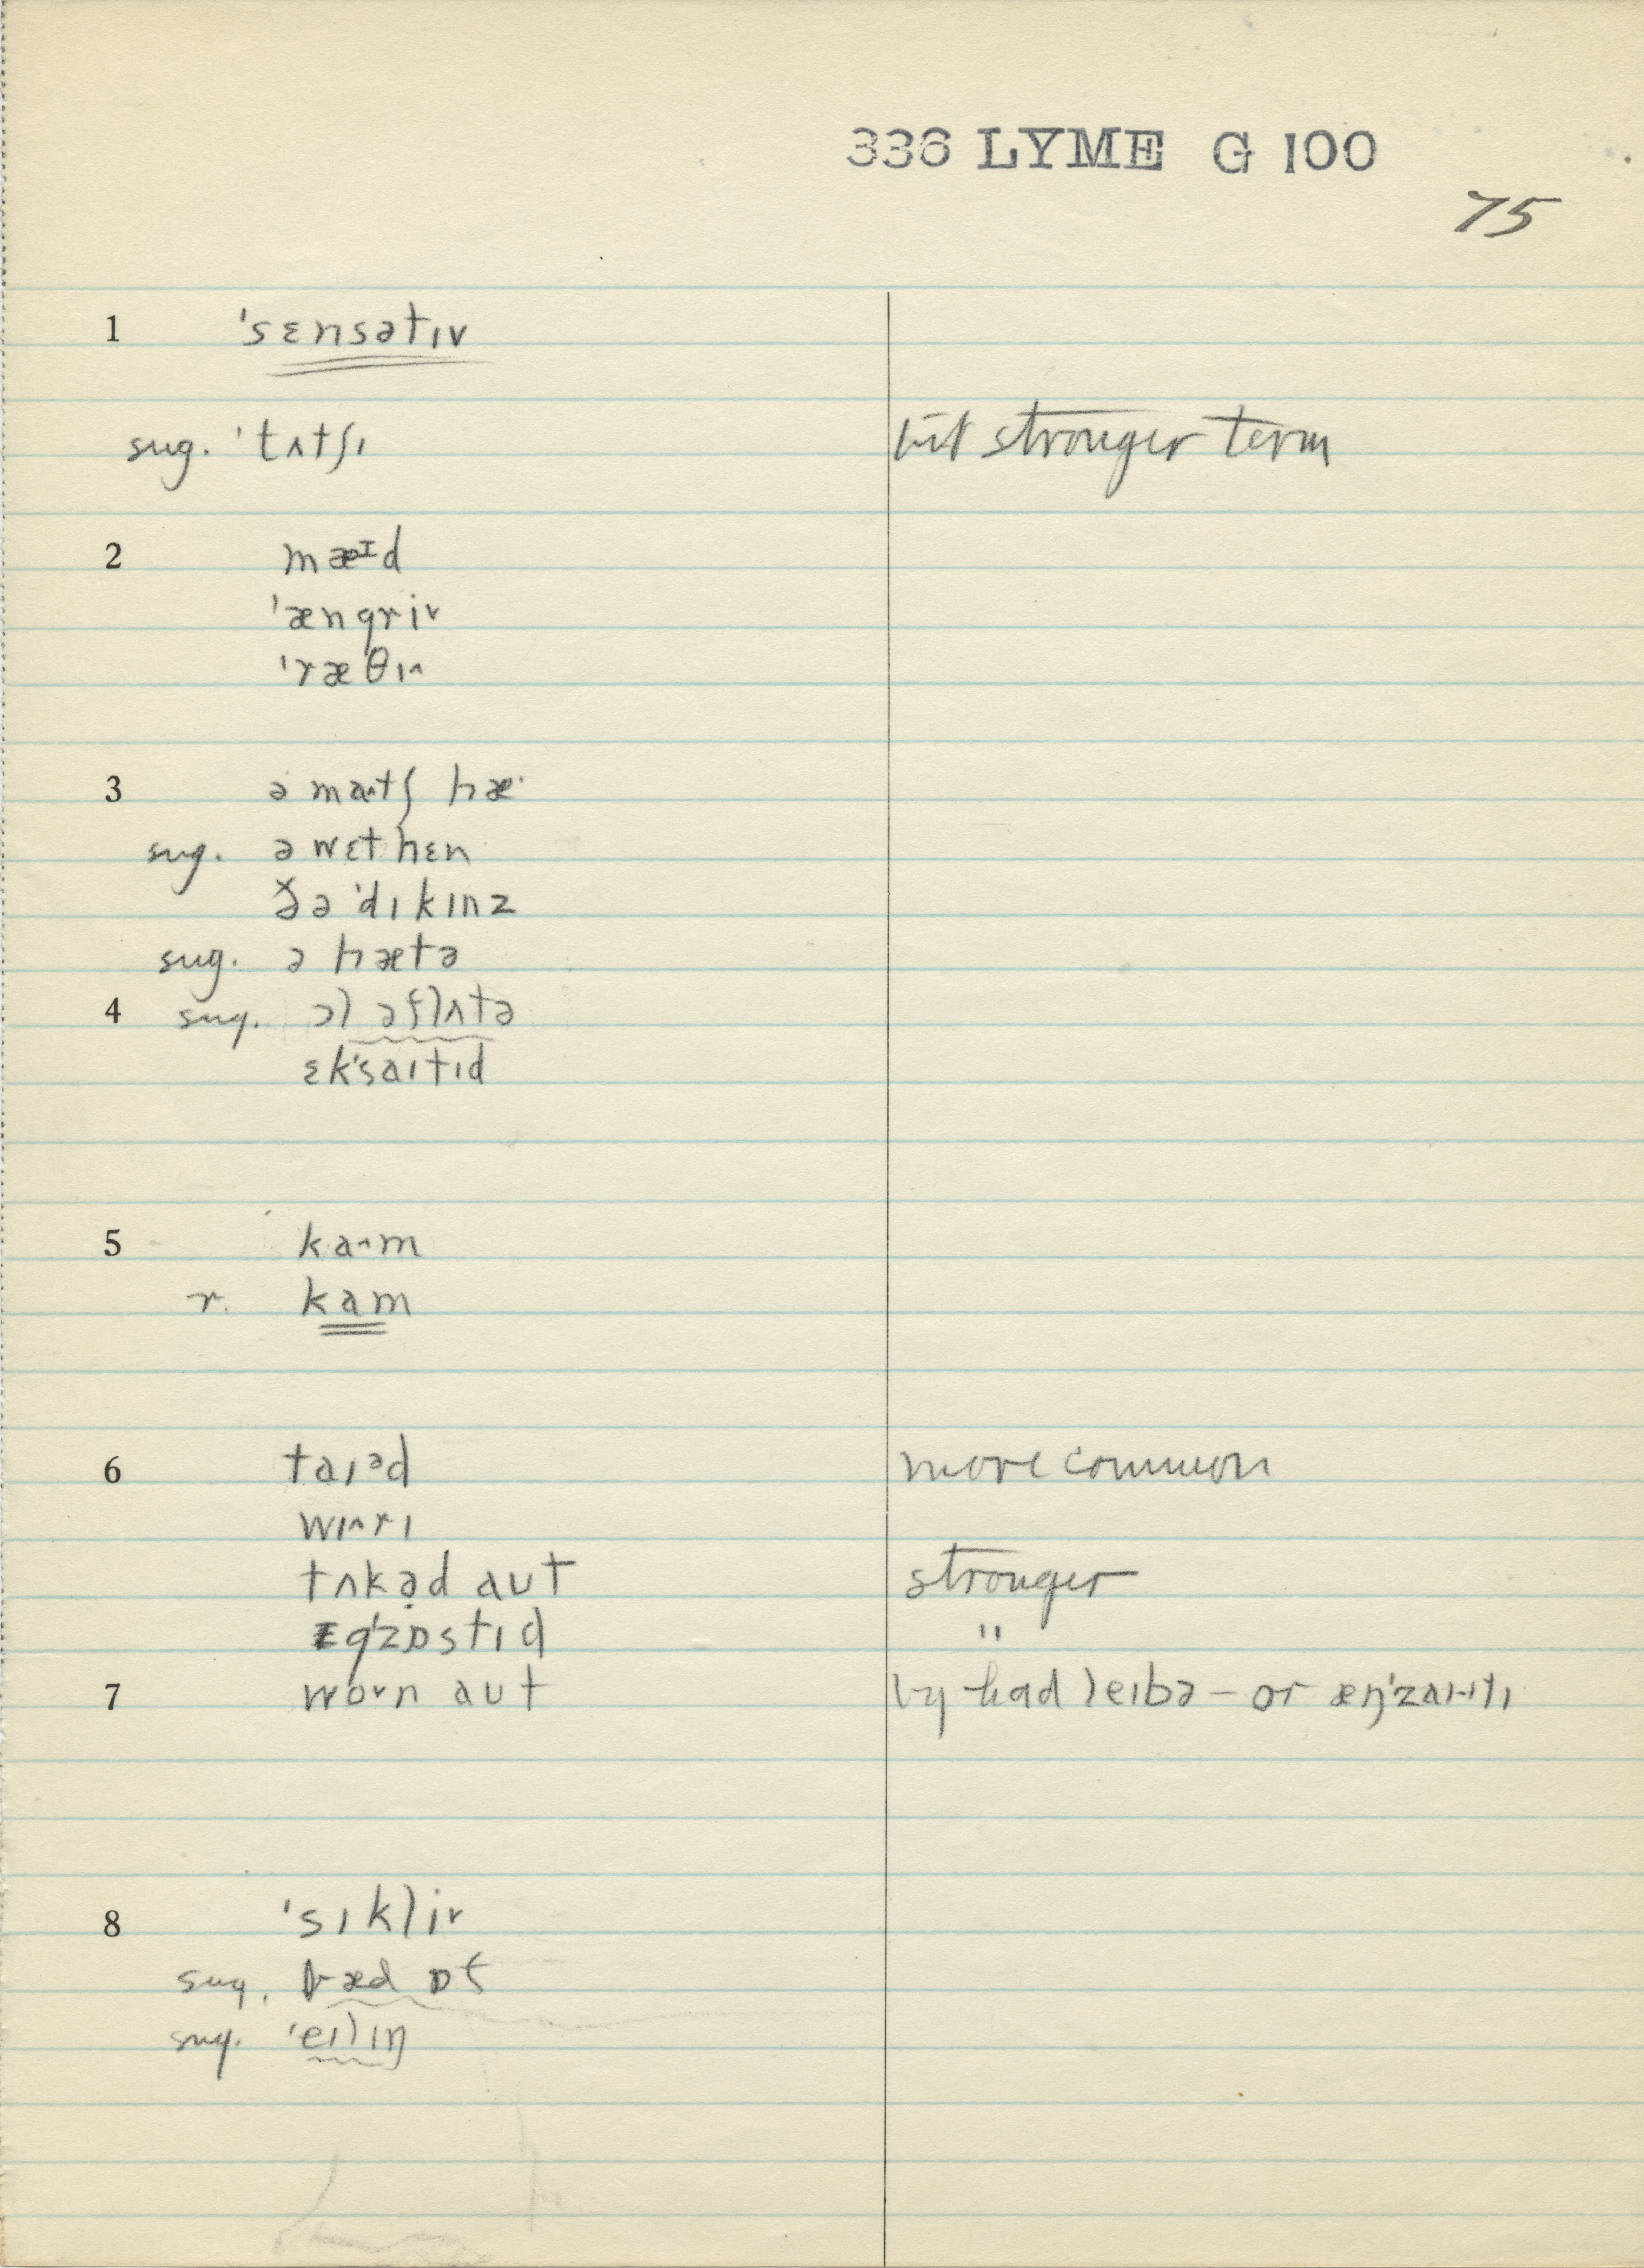 336 LYME G 100
75
1 ˈsɛnsətɪv
sug. ˈtʌtʃɪ bit stronger term
2 mæᶦd
ˈæŋgri˅
ˈræθɪ˄
3 ə matʃ hæ·
sug. ə wɛt hɛn
ðə ˈdɪkɪnz
sug. ə hætə
4 sug. ɔl əflʌtə
ɛkˈsaɪtɪd
5 ka˄m
r. kam
6 taɪᵊd more common
wɪ˄rɪ
tʌkəd aut stronger
ɪgˈzɒstɪd "
7 wo˅n aut by had leɪbə – or
8 ˈsɪkli˅
sug. bæd ɒf
sug. ˈeɪlɪŋ